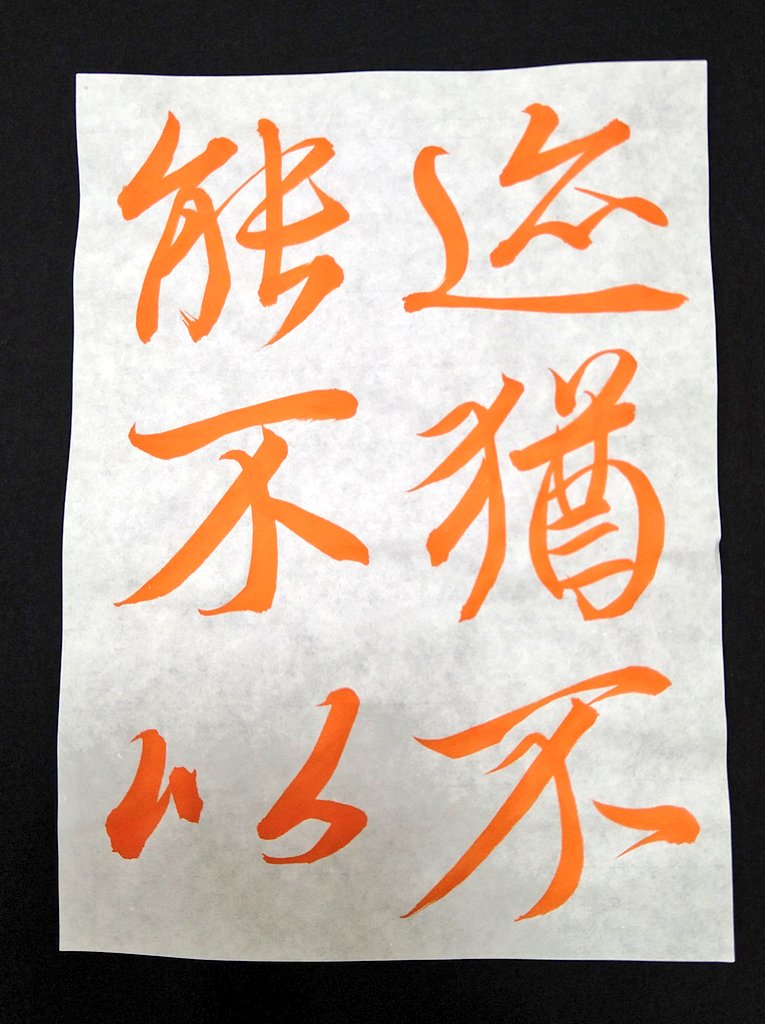 迹猶不
能不以